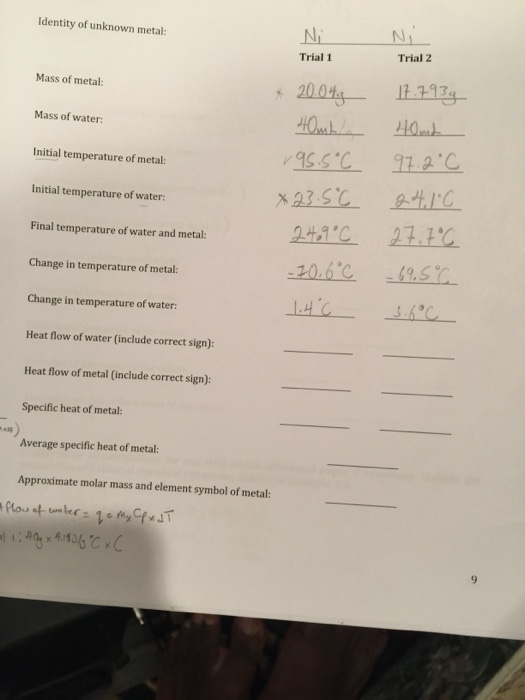 Identity of unknown metal: Ni Ni
Trial 1 Trial 2
Mass of metal: * 20.04g 17.793g
Mass of water: 40mL 40mL
Initial temperature of metal: 95.5°C 97.2°C
Initial temperature of water: × 23.5°C 24.1°C
Final temperature of water and metal: 24.9°C 27.7°C
Change in temperature of metal: -70.6°C -69.5°C
Change in temperature of water: 1.4°C 3.6°C
Heat flow of water (include correct sign):
Heat flow of metal (include correct sign):
Specific heat of metal:
Average specific heat of metal:
Approximate molar mass and element symbol of metal:
flow of water = q = m x Cp x ΔT
1: 40g x °C x (
9